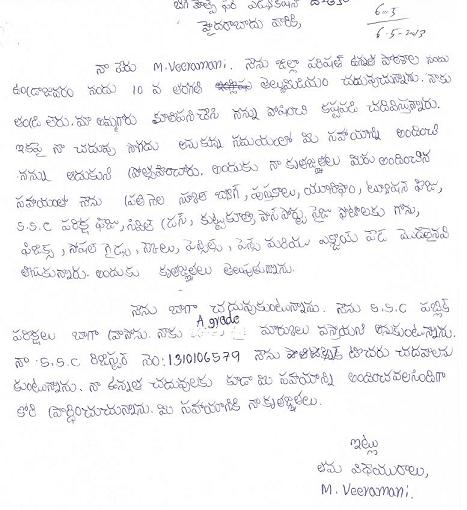 హైదరాబాదు వారికి,
6-5-2013
నా పేరు M.Veeramani. నేను జిల్లా పరిషత్ ఉన్నత పాఠశాల నందు
నందు 10 వ తరగతి తెలుగుమీడియం చదువుచున్నాను. నాకు
తండ్రి లేరు. మా అమ్మగారు కూలిపనిచేసి నన్ను పోషించి కష్టపడి చదివిస్తున్నారు.
ఇకపై నా చదువు సాగదు అనుకున్న సమయంలో మీ సహాయాన్ని అందించి
నన్ను ఆదుకుని ప్రోత్సహించారు. అందుకు నా కృతజ్ఞతలు మీరు అందించిన
సహాయంతో నేను ప్రతి నెల స్కూల్ బ్యాగ్, పుస్తకాలు, యూనిఫాం, ట్యూషన్ ఫీజు,
S.S.C పరీక్ష ఫీజు, సివిల్ డ్రస్, కుట్టుకూలి, పాస్‌పోర్టు సైజు ఫోటోలకు గాను,
ఫిజిక్స్, సోషల్ గైడ్లు, స్కేలు, పెన్సిళ్లు, పెన్ను మరియు ఎగ్జామ్ పేడ్ మొదలైనవి
తీసుకున్నాను. అందుకు కృతజ్ఞతలు తెలుపుతున్నాను.
నేను బాగా చదువుకుంటున్నాను. నేను S.S.C పబ్లిక్
పరీక్షలు బాగా వ్రాసాను. నాకు A grade మార్కులు వస్తాయని అనుకుంటున్నాను.
నా S.S.C రిజిష్టర్ నెం: 1310106579 నేను టీచరు చదవాలను
కుంటున్నాను. నా ఉన్నత చదువులకు కూడా మీ సహాయాన్ని అందించవలసిందిగా
కోరి ప్రార్థించుచున్నాను. మీ సహాయానికి నా కృతజ్ఞతలు.
ఇట్లు
తమ విధేయురాలు,
M.Veeramani.